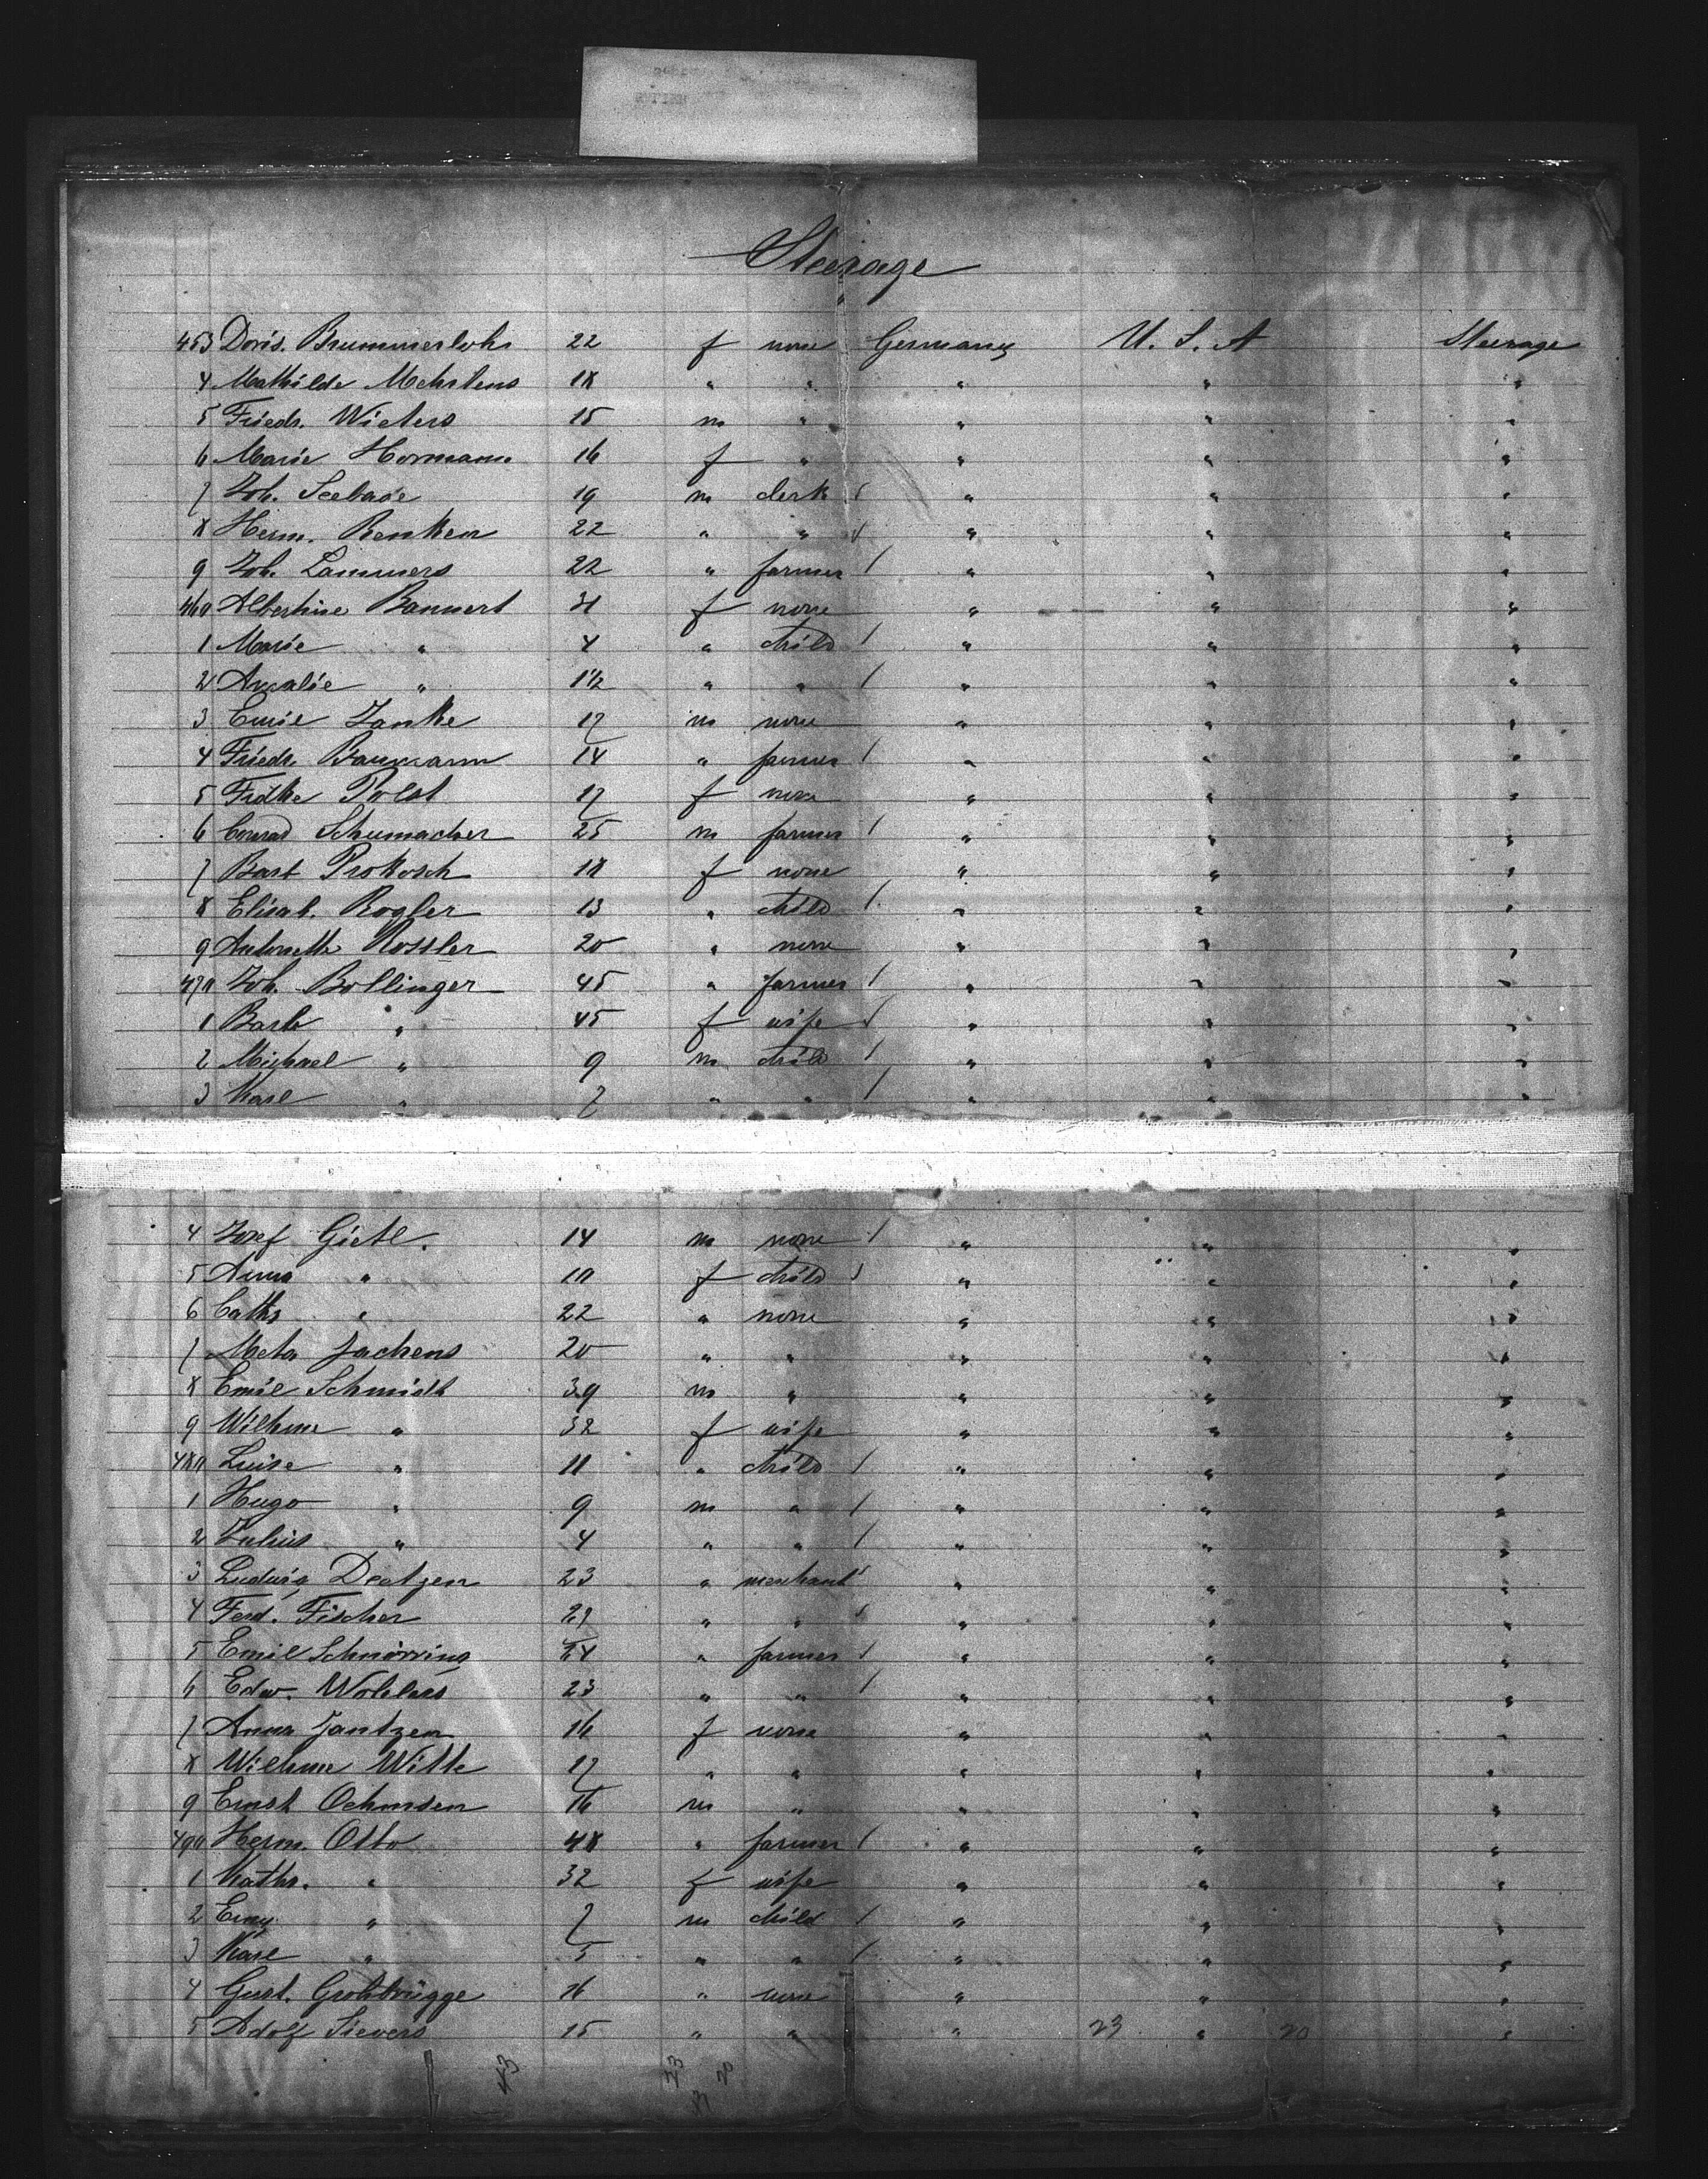 Steerage
453 Doris. Brummerlohr 22 f none Germany U. S. A Steerage
4 Mathilde Mehrtens 18 " " " " "
5 Friedr. Wieters 15 m " " " "
6 Marie Hormann 16 f " " " "
7 Joh. Seebase 19 m clerk / " " "
8 Herm. Renken 22 " " / " " "
9 Joh. Lammers 22 " farmer / " " "
460 Albertine Bannert 31 f none " " "
1 Marie " 4 " child / " " "
2 Amalie " 1½ " " / " " "
3 Emil Janke 17 m none " " "
4 Friedr. Baumann 14 " farmer / " " "
5 Fritke Polst 17 f none " " "
6 Conrad Schumacher 25 m farmer / " " "
7 Barb Prokosch 18 f none " " "
8 Elisab. Rogler 13 " child / " " "
9 Antonette Rossler 20 " none " " "
470 Joh. Bollinger 45 " farmer / " " "
1 Barb " 45 f wife / " " "
2 Michael " 9 m child / " " "
3 Karl " 7 " " / " " "
4 Josef Gietl. 14 m none / " " "
5 Anna " 10 f child / " " "
6 Cathr " 22 " none " " "
7 Meta Jachens 20 " " " " "
8 Emil Schmidt 39 m " " " "
9 Wilhme " 32 f wife " " "
480 Luise " 11 " child / " " "
1 Hugo " 9 m " / " " "
2 Julius " 4 " " / " " "
3 Ludwig Deetzen 23 " merchant / " " "
4 Ferd. Fischer 27 " " / " " "
5 Emil Schnörring 24 " farmer / " " "
6 Edw. Wohlers 23 " " / " " "
7 Anna Jantzen 16 f none " " "
8 Wilhme Witte 17 " " " " "
9 Ernst Ochmsen 16 m " " " "
490 Herm. Otto 48 " farmer / " " "
1 Kathr. " 32 f wife " " "
2 Erny " 7 m child / " " "
3 Karl " 5 " " / " " "
4 Gust. Grohbrügge 16 " none " " "
5 Adolf Sievers 15 " " " 23 " 20 "
43 23 20